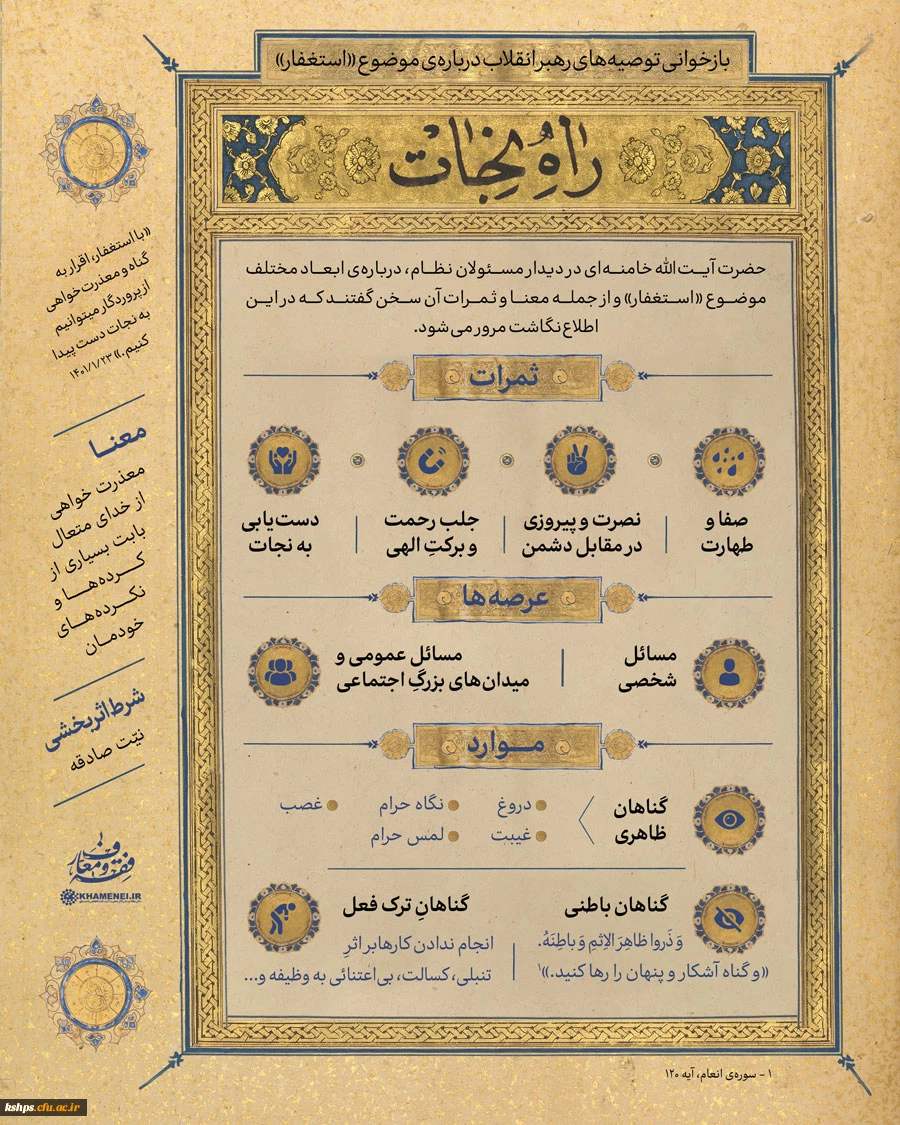 بازخوانی توصیه‌های رهبر انقلاب درباره‌ی موضوع «استغفار»
راهِ نجات
حضرت آیت‌الله خامنه‌ای در دیدار مسئولان نظام، درباره‌ی ابعاد مختلف
موضوع «استغفار» و از جمله معنا و ثمرات آن سخن گفتند که در این
اطلاع‌نگاشت مرور می‌شود.
ثمرات
صفا و
طهارت
نصرت و پیروزی
در مقابل دشمن
جلب رحمت
و برکتِ الهی
دست‌یابی
به نجات
عرصه‌ها
مسائل
شخصی
مسائل عمومی و
میدان‌های بزرگِ اجتماعی
موارد
گناهان
ظاهری
دروغ
نگاه حرام
غصب
غیبت
لمس حرام
گناهان باطنی
وَ ذَروا ظاهِرَ الاِثمِ وَ باطِنَهُ.
«و گناه آشکار و پنهان را رها کنید.»۱
گناهانِ ترک فعل
انجام ندادن کارها بر اثرِ
تنبلی، کسالت، بی‌اعتنائی به وظیفه و...
«با استغفار، اقرار به
گناه و معذرت‌خواهی
از پروردگار میتوانیم
به نجات دست پیدا
کنیم.» ۱۴۰۱/۱/۲۳
معنا
معذرت خواهی
از خدای متعال
بابت بسیاری از
کرده‌ها و
نکرده‌های
خودمان
شرط اثربخشی
نیّت صادقه
فقه و معارف
KHAMENEI.IR
۱ - سوره‌ی انعام، آیه ۱۲۰
kshps.cfu.ac.ir